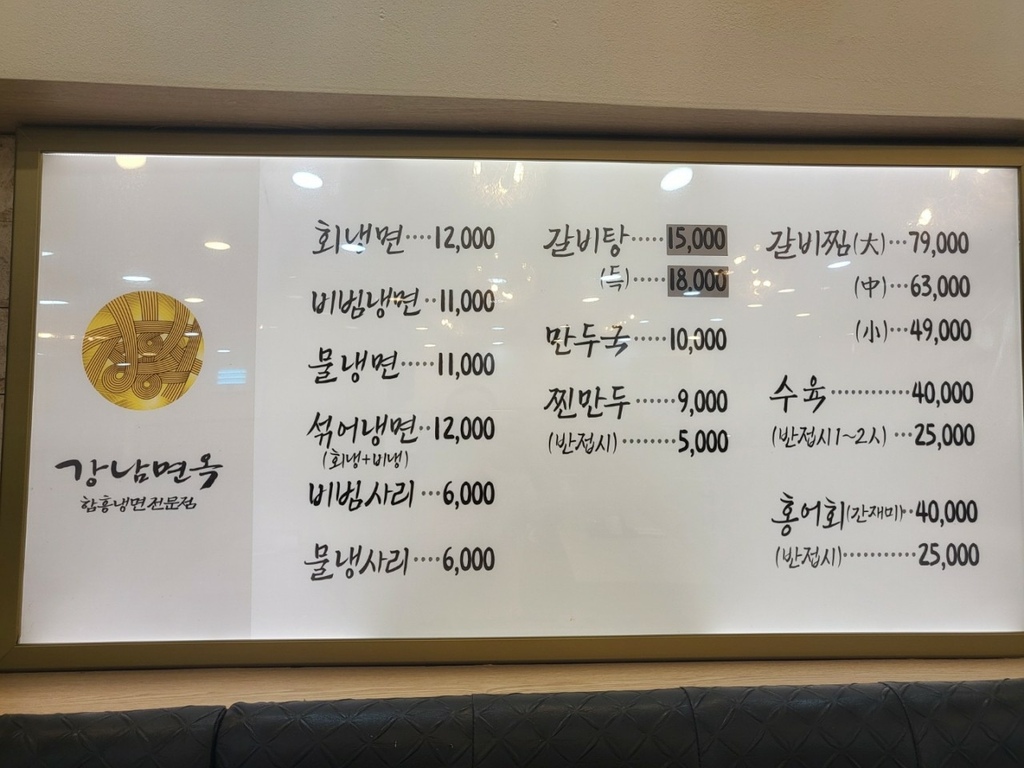 강남면옥
함흥냉면전문점
회냉면····12,000
비빔냉면··11,000
물냉면·····11,000
섞어냉면··12,000
(회냉+비냉)
비빔사리···6,000
물냉사리····6,000
갈비탕·····15,000
(특)·····18,000
만두국·····10,000
찐만두······9,000
(반접시)········5,000
갈비찜(大)···79,000
(中)···63,000
(小)···49,000
수육···········40,000
(반접시1~2시)···25,000
홍어회(간재미)··40,000
(반접시)···········25,000